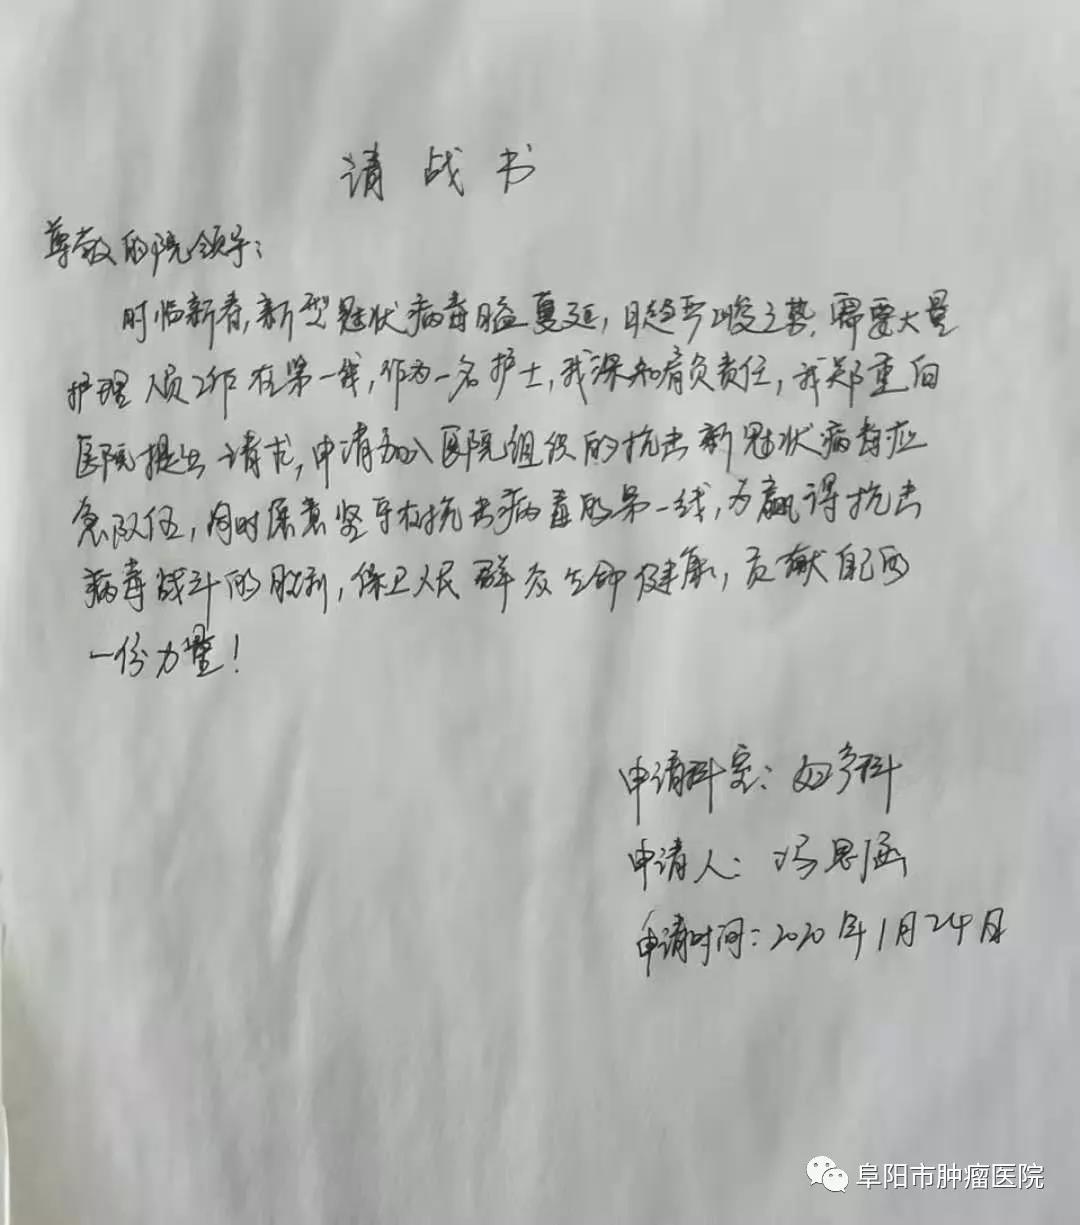 请战书
尊敬的院领导：
时临新春，新型冠状病毒肺蔓延，日趋严峻之势，需要大量
护理人员工作在第一线，作为一名护士，我深知肩负责任，我郑重向
医院提出请求，申请加入医院组织的抗击新冠状病毒应
急队伍，同时愿意坚守在抗击病毒的第一线，为赢得抗击
病毒战斗的胜利，保卫人民群众生命健康，贡献自己的
一份力量！
申请科室：妇科
申请人：冯思涵
申请时间：2020年1月24日
阜阳市肿瘤医院